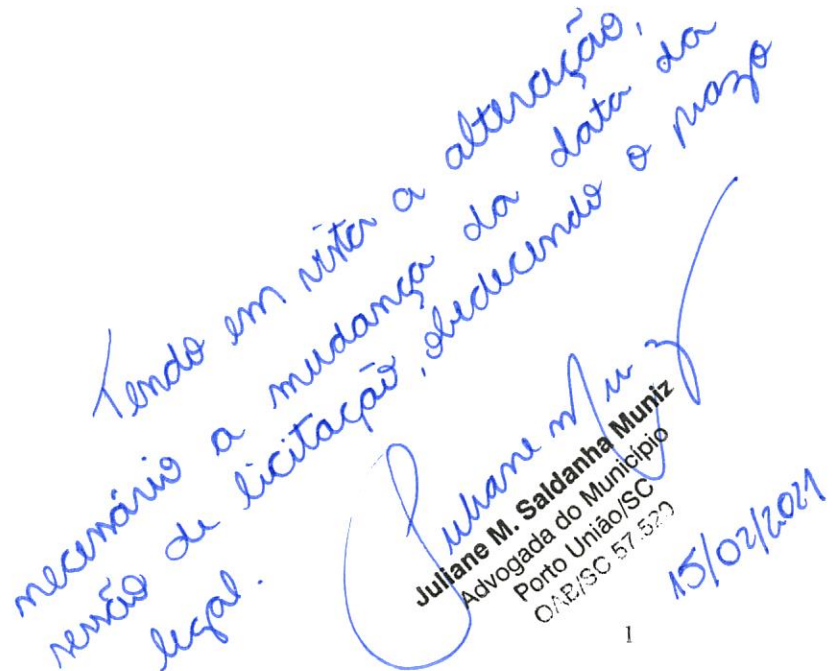 Tendo em vista a alteração,
necessário a mudança da data da
sessão de licitação, obedecendo o prazo
legal.
Juliane Muniz
Juliane M. Saldanha Muniz
Advogada do Município
Porto União/SC
OAB/SC 57.520
15/02/2021
1